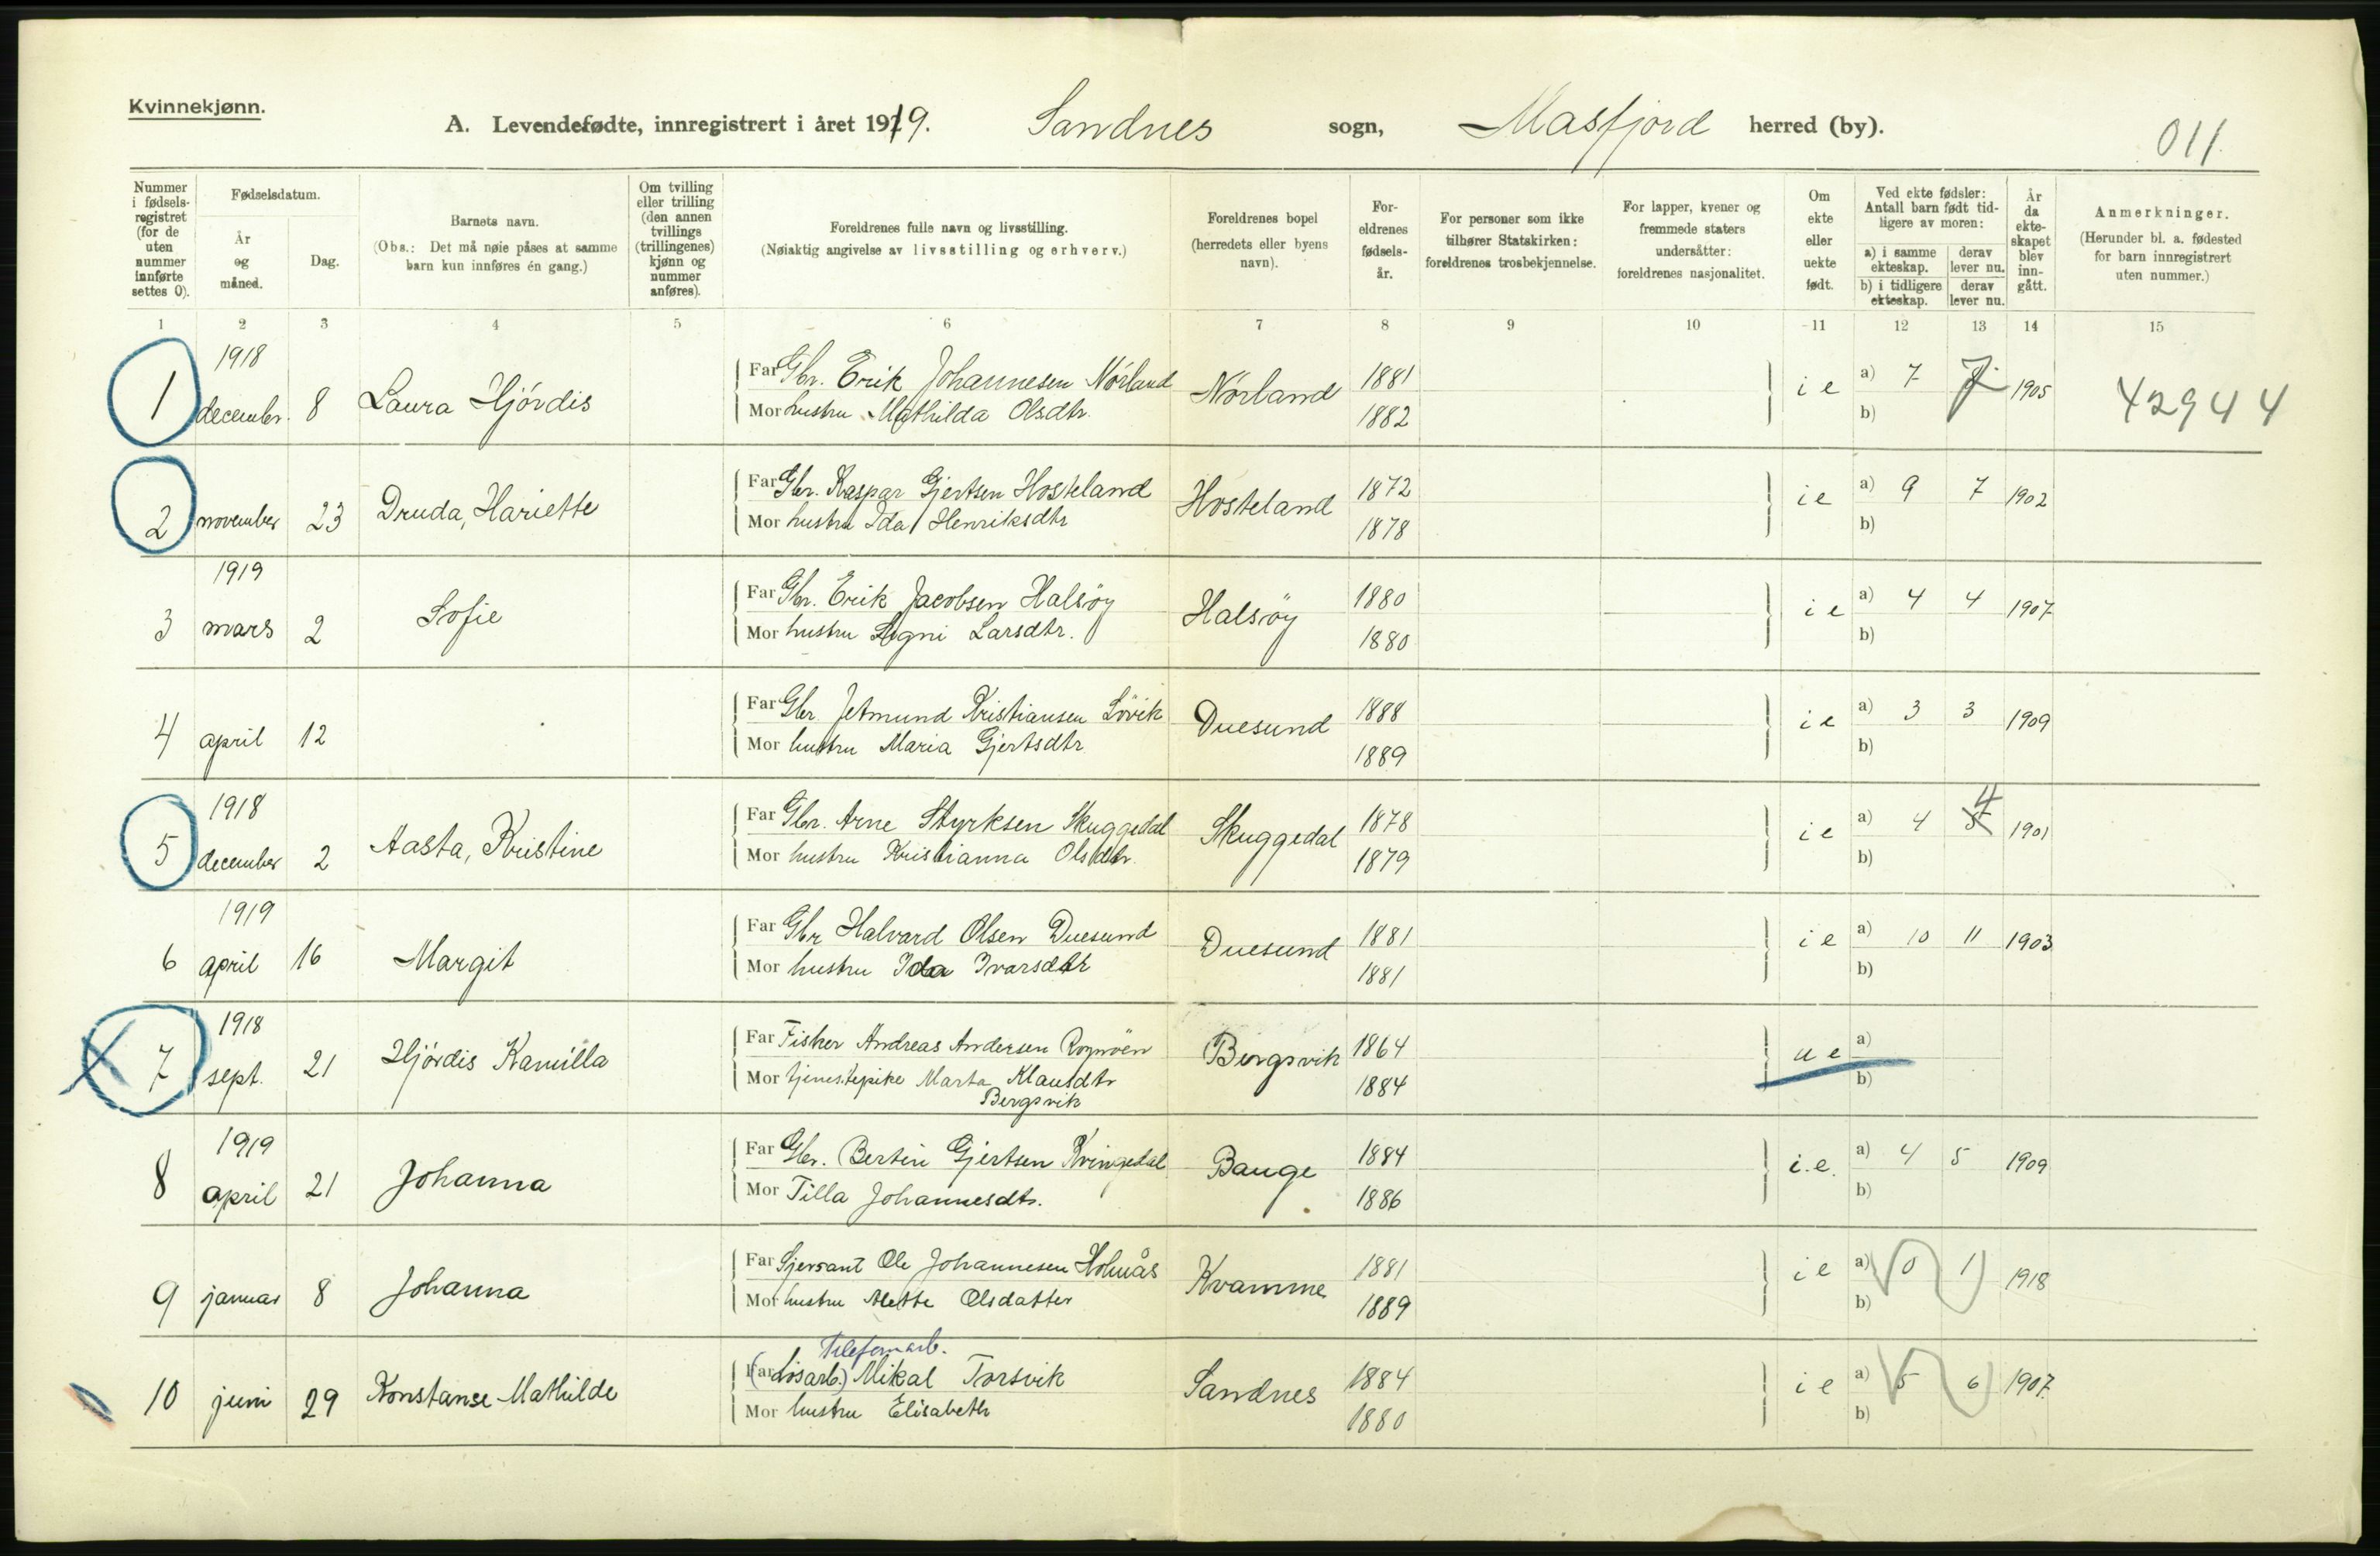 Kvinnekjønn.
A. Levendefødte, innregistrert i året 1919. Sandnes sogn, Masfjord herred (by).
011.
Nummer i fødsels-registret (for de uten nummer innførte settes 0).
Fødselsdatum.
År og måned.
Dag.
Barnets navn.
(Obs.: Det må nøie påses at samme barn kun innføres én gang.)
Om tvilling eller trilling (den annen tvillings (trillingenes) kjønn og nummer anføres).
Foreldrenes fulle navn og livsstilling.
(Nøiaktig angivelse av livsstilling og erhverv.)
Foreldrenes bopel (herredets eller byens navn).
For-eldrenes fødsels-år.
For personer som ikke tilhører Statskirken: foreldrenes trosbekjennelse.
For lapper, kvener og fremmede staters undersåtter: foreldrenes nasjonalitet.
Om ekte eller uekte født.
Ved ekte fødsler: Antall barn født tid-ligere av moren:
a) i samme ekteskap. derav lever nu.
b) i tidligere ekteskap. derav lever nu.
År da ekte-skapet blev inn-gått.
Anmerkninger.
(Herunder bl. a. fødested for barn innregistrert uten nummer.)
1 2 3 4 5 6 7 8 9 10 11 12 13 14 15
1918
1 december. 8 Laura Hjördis Far Gbr. Erik Johannesen Nörland Nörland 1881 i e a) 7 7 1905 42944
Mor hustru Mathilda Olsdtr. 1882 b)
2 november 23 Druda, Hariette Far Gbr. Kaspar Gjertsen Hosteland Hosteland 1872 i e a) 9 7 1902
Mor hustru Ida Henriksdtr 1878 b)
1919
3 mars 2 Sofie Far Gbr. Erik Jacobsen Halsöy Halsöy 1880 i e a) 4 4 1907
Mor hustru Signi Larsdtr. 1880 b)
4 april 12 Far Gbr. Jetmund Kristiansen Lövik Duesund 1888 i e a) 3 3 1909
Mor hustru Maria Gjertsdtr 1889 b)
1918
5 december 2 Aasta, Kristine Far Gbr. Arne Styrksen Skuggedal Skuggedal 1878 i e a) 4 4 1901
Mor hustru Kristianna Olsdtr. 1879 b)
1919
6 april 16 Margit Far Gbr Halvard Olsen Duesund Duesund 1881 i e a) 10 11 1903
Mor hustru Ida Ivarsdtr 1881 b)
1918
7 sept. 21 Hjördis Kamilla Far Fisker Andreas Andersen Bergsvik 1864 u e a)
Mor tjenestepike Marta Klausdtr 1884 b)
Bergsvik
1919
8 april 21 Johanna Far Gbr. Bertin Gjertsen Kvingedal Bauge 1884 i.e. a) 4 5 1909
Mor Tilla Johannesdtr. 1886 b)
9 januar 8 Johanna Far Sjersant Ole Johannesen Holmås Kvamme 1881 i e a) 0 1 1918
Mor hustru Mette Olsdatter 1889 b)
Telefonarb.
10 juni 29 Konstanse Mathilde Far (Lösarb.) Mikal Torsvik Sandnes 1884 i e a) 5 6 1907
Mor hustru Elisabeth 1880 b)